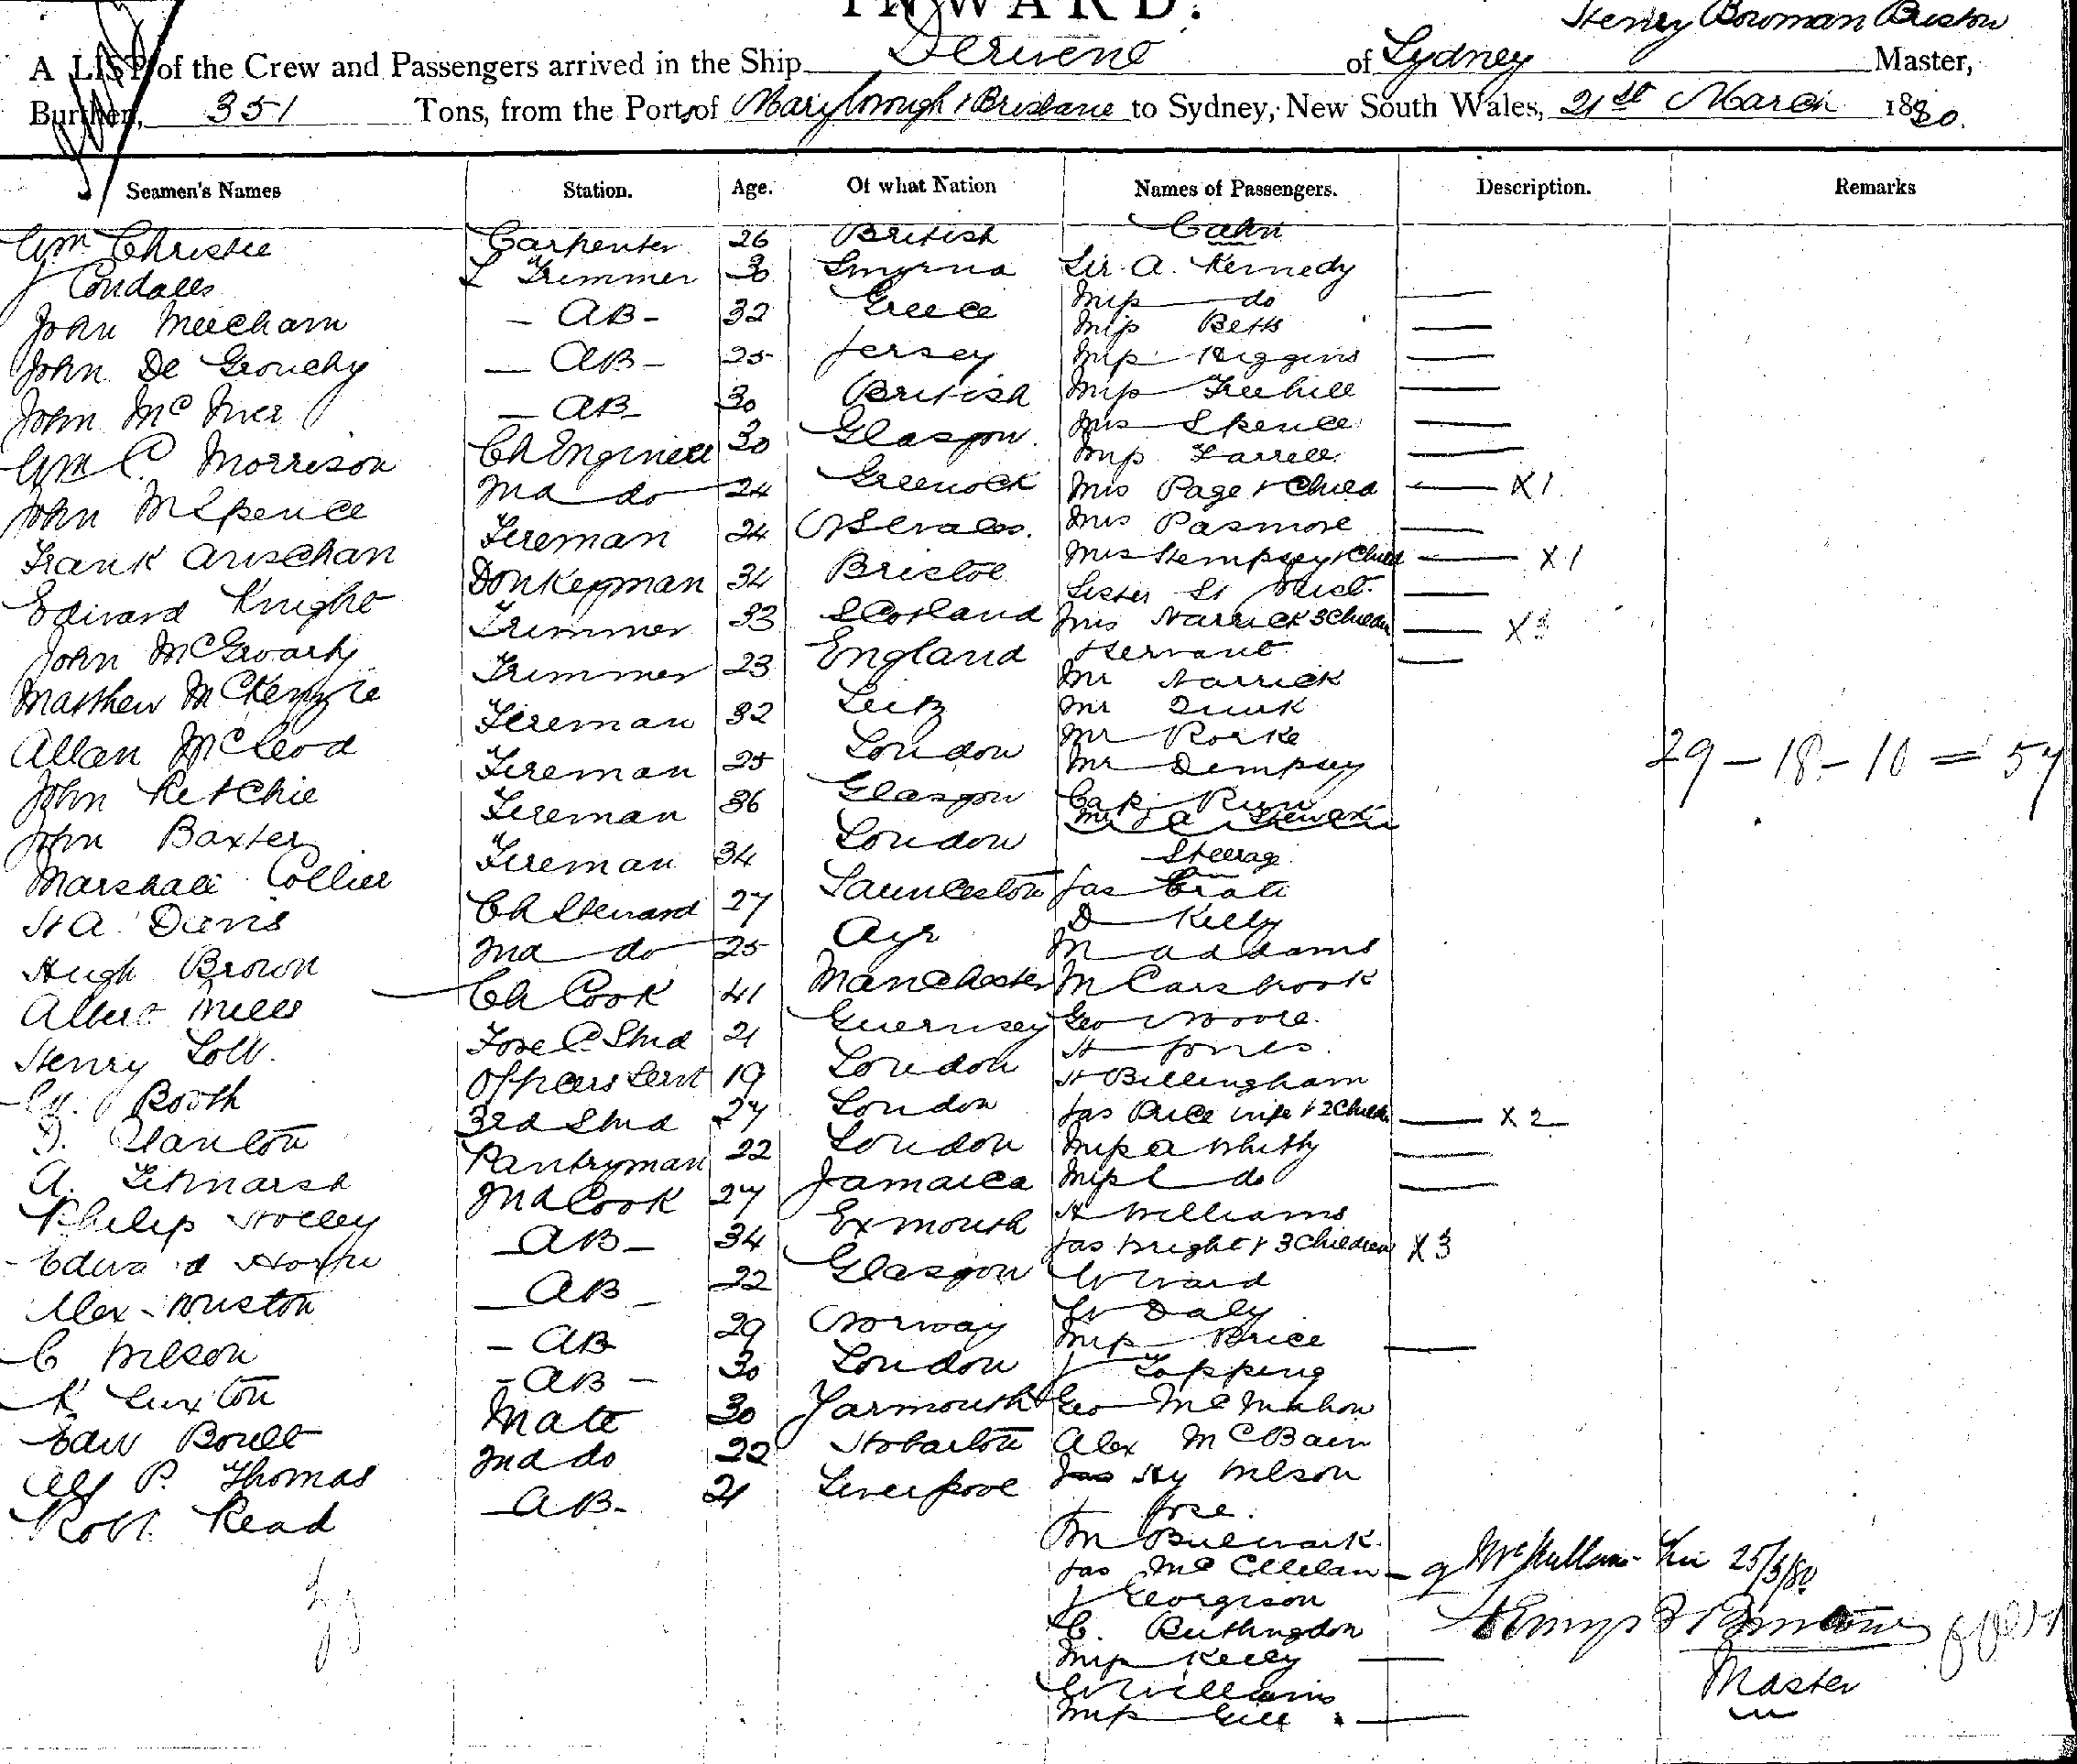 INWARD.
Henry Bowman Briston
A LIST of the Crew and Passengers arrived in the Ship Derwent of Sydney Master,
Burthen, 351 Tons, from the Ports of Maryborough & Brisbane to Sydney, New South Wales, 21st March 1880.
Seamen's Names Station. Age. Of what Nation Names of Passengers. Description. Remarks
Cabin
Wm Christie Carpenter 26 British Sir A. Kennedy
J Condales L Trimmer 30 Smyrna Miss do
John Meecham AB 32 Greece Miss Betts
John De Grouchy AB 25 Jersey Miss Higgins
John McIver AB 30 British Miss Freehill
Wm C. Morrison Ch Engineer 30 Glasgow Mrs Spence
Miss Farrell
John M Spence 2nd do 24 Greenock Mrs Page & Child X1
Frank Arischan Fireman 24 N S Wales. Mrs Pasmore
Edward Knight Donkeyman 34 Bristol Mrs Dempsey & Child X1
Sister St
John McGwarty Trimmer 33 Scotland Mrs Warrick 3 Children X3
Matthew McKenzie Trimmer 23 England & Servant
Mr Warrick
Allan McLeod Fireman 32 Leith Mr Quirk
Mr Rorke
John Ritchie Fireman 25 London Mr Dempsey
29 - 18 - 10 = 57
John Baxter Fireman 36 Glasgow Capt.
Steerage
Marshall Collier Fireman 34 London Jas
H A. Davis Ch Steward 27 Launceston D Kelly
Hugh Brown 2nd do 25 Ayr M Addams
Albert Mills Ch Cook 41 Manchester M Carsbrook
Henry Lott. Fore C Stud 21 Guernsey Geo Moore.
H Jones.
Booth Officers Servt 19 London H Billingham
D. Stanton 3rd Stud 27 London Jas Price wife & 2 Children X2
A. Titmarsh Pantryman 22 London Miss A Whitty
Philip Holley 2nd Cook 27 Jamaica Miss L do
H Williams
Edward AB 34 Exmouth Jas Wright & 3 Children X3
Alex Huston AB 22 Glasgow W Ward
W Daly
C Wilson AB 29 Norway Miss Price
K Luxton AB 30 London J Topping
Edw Boult Mate 30 Yarmouth Geo McMahon
Alf P. Thomas 2nd do 22 Hobarton Alex McBain
Robt. Read AB 21 Liverpool Jas Hy Wilson
Jose.
M Bulwark.
Jas McClelan
J Georgison
25/3/80
C. Ruthingdon
Miss Kelly
Master
W Williams
Miss Gill